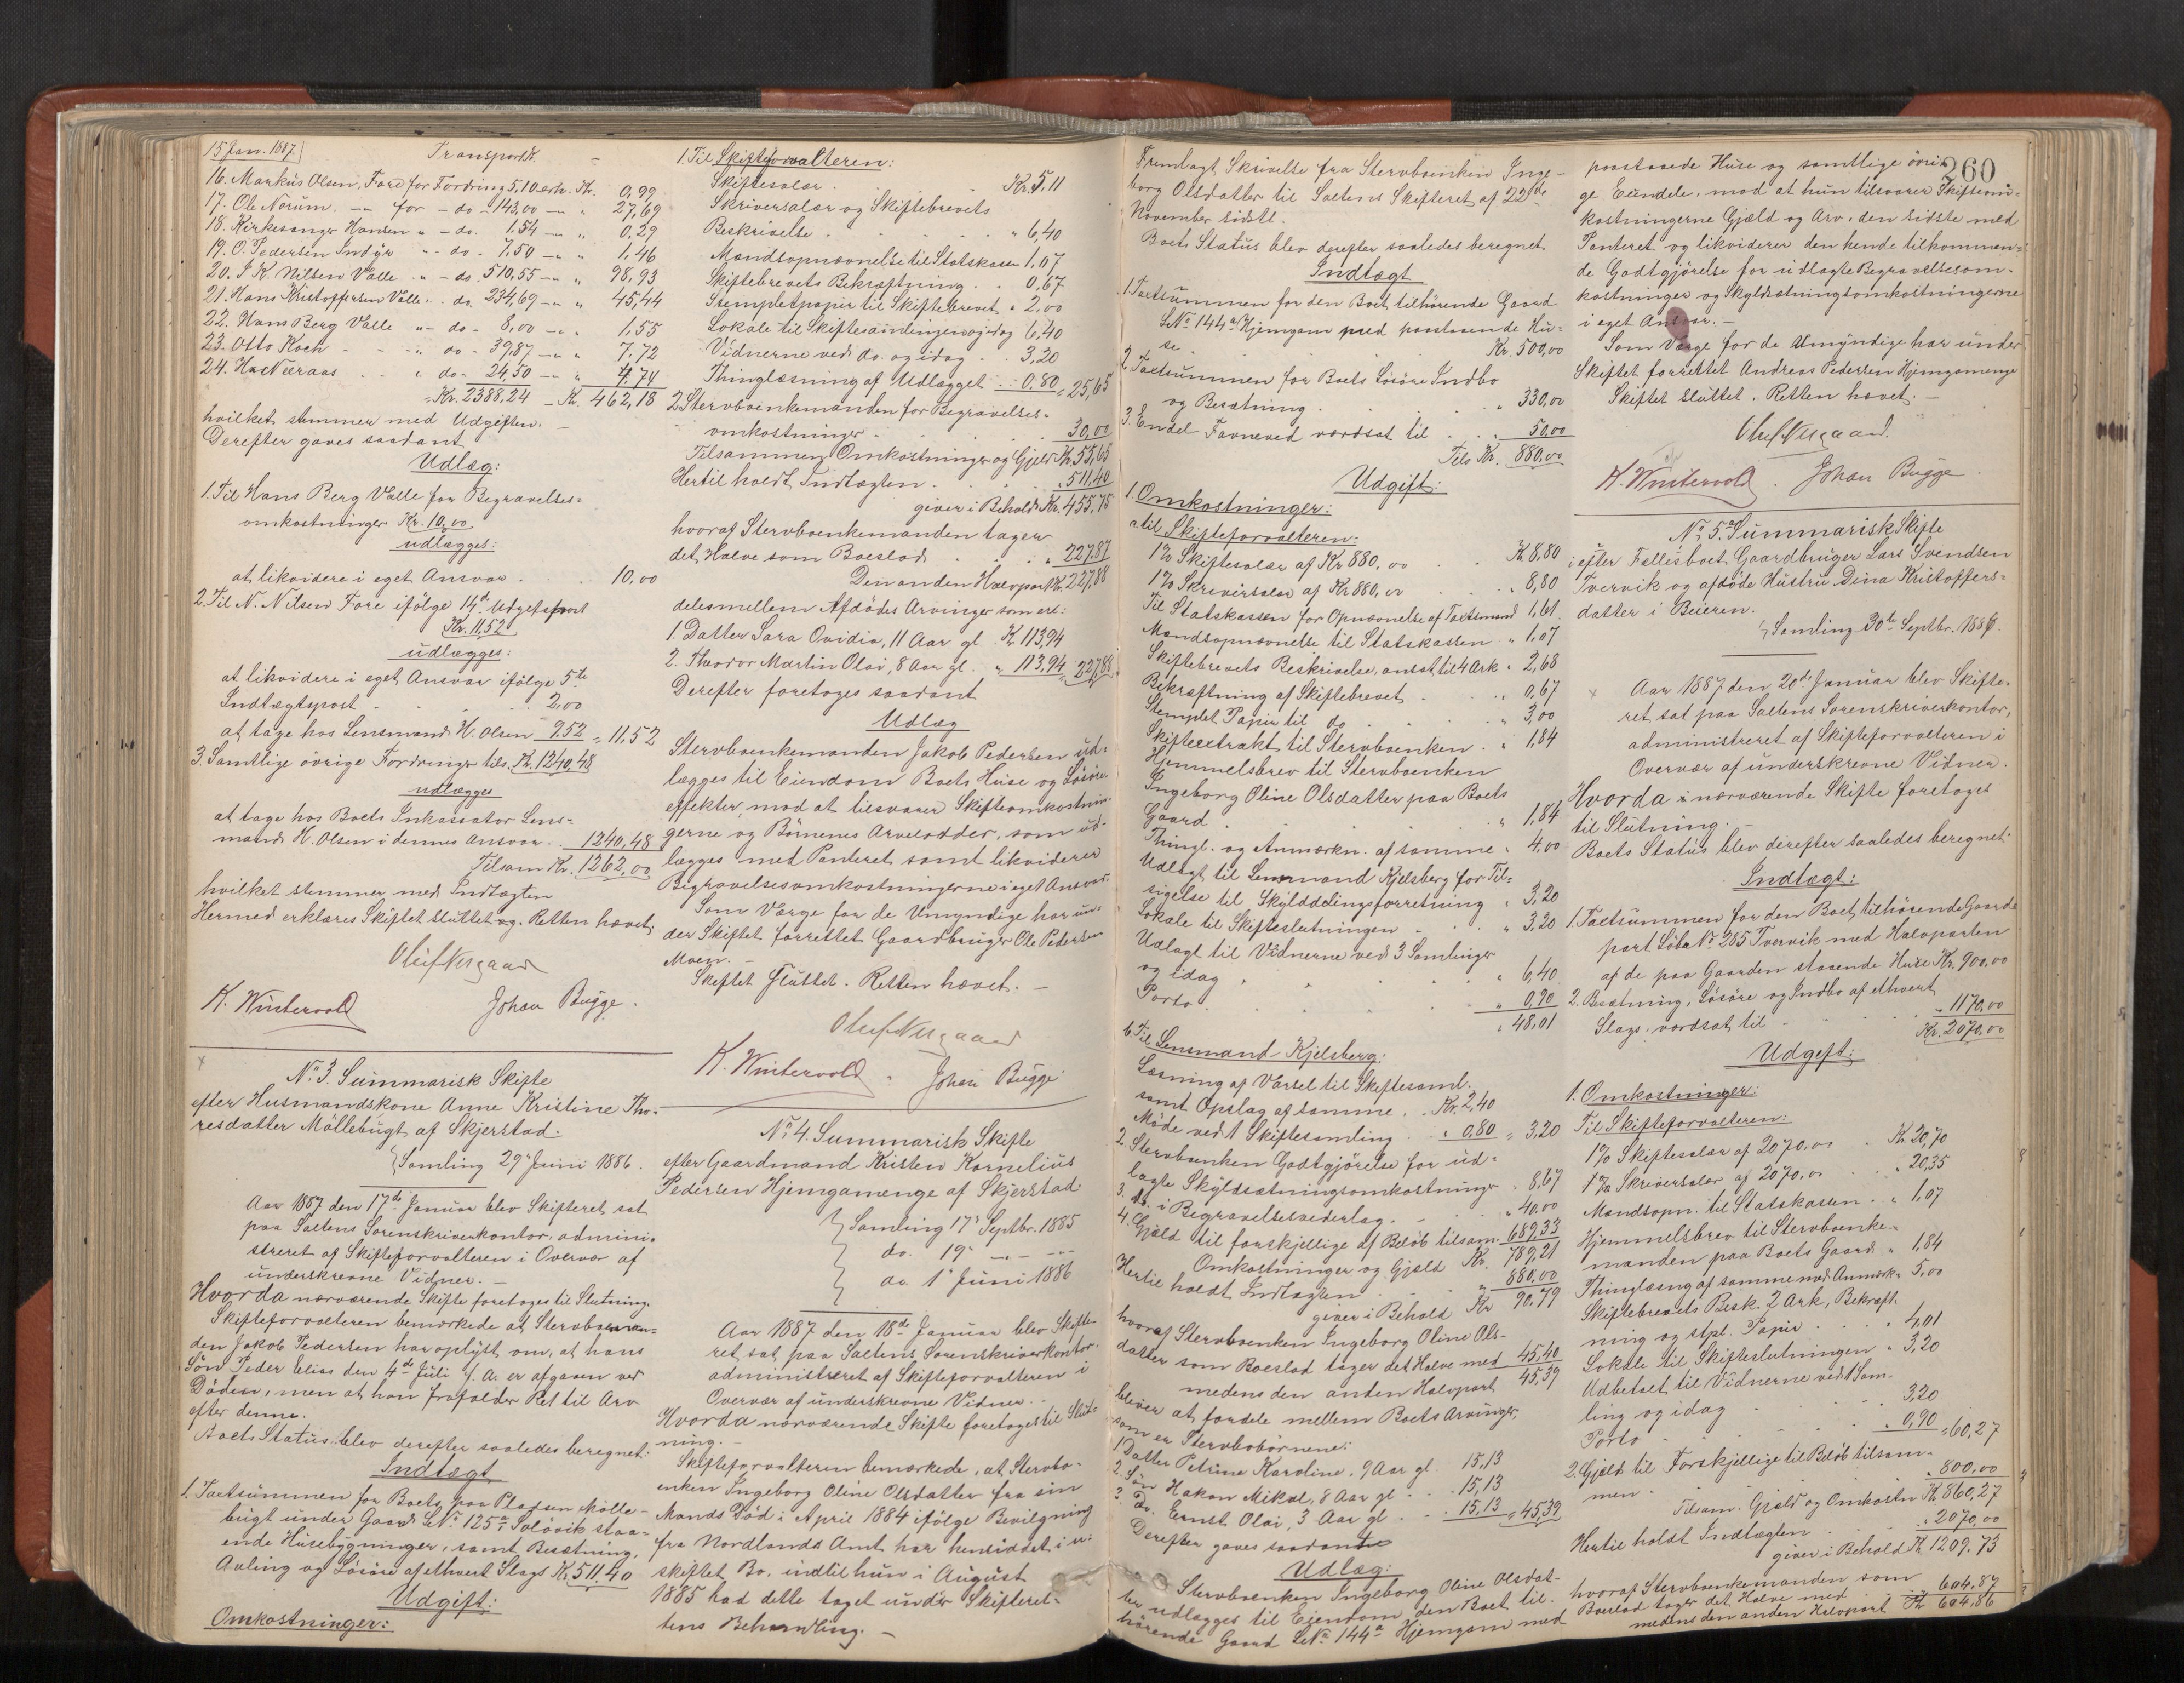 15 Jan. 1887
Transport Kr. -
16. Markus Olsen, Fore for Fordring 5,10 erh. Kr. 0,99
17. Ole Norum. -"- for - do - 143,00 -"- " 27,69
18. Kirkesanger Hansen " - do. 1.54 -"- " 0,29
19. O. Pedersen Indyr "- do - 7,50 -"- " 1,46
20. I. K. Nilsen Valle " - do. 510,55 -"- " 98,93
21. Hans Kristoffersen Valle " - do. 234,69 -"- " 45,44
22. Hans Berg Valle "- do - 8,00 -"- " 1,55
23. Otto Koch - - " do - 39,87 -"- " 7,72
24. Næraas . . " do - 24,50 -"- " 4,74
Kr. 2388,24 - Kr. 462,18
hvilket stemmer med Udgiften. -
Derefter gaves saadant
Udlæg:
1. Til Hans Berg Valle for Begravelses-
omkostninger Kr. 10,00
udlægges:
at likvidere i eget Ansvar . . . 10,00
2. Til N. Nilsen Fore ifölge 14d Udgiftspost
Kr. 11,52
udlægges:
at likvidere i eget Ansvar ifölge 5te
Indtægtspost . . . 2,00
at tage hos Lensmand H. Olsen 9,52 " 11,52
3. Samtlige övrige Fordringer tils. Kr. 1240,48
udlægges
at tage hos Boets Inkassator Lens-
mand H. Olsen i dennes Ansvar . 1240,48
Tilsam Kr. 1262,00
hvilket stemmer med Indtægten
Hermed erklæres Skiftet sluttet og Retten hævet.
Oluf Nergaard
K. Wintervold Johan Bugge.
No 3. Summarisk Skifte
efter Husmandskone Anne Kristine Tho-
resdatter Möllebugt af Skjerstad.
Samling 29 Juni 1886.
Aar 1887 den 17de Januar blev Skifteret sat
paa Saltens Sorenskriverkontor, admini-
streret af Skifteforvalteren i Overvær af
underskrevne Vidner. -
Hvorda nærværende Skifte foretoges til Slutning.
Skifteforvalteren bemærkede at Stervboenkeman-
den Jakob Pedersen har oplyst om, at hans
Sön Peder Elias den 4de Juli f. A. er afgaaen ved
Döden, men at han frafalder Ret til Arv
efter denne.
Boets Status blev derefter saaledes beregnet:
Indtægt
1. Taxtsummen for Boets paa Pladsen Mölle-
bugt under Gaard L.No 125a Solövik staa-
ende Husebygninger, samt Besætning,
Avling og Lösöre af ethvert Slags Kr. 511,40
Udgift:
Omkostninger:
1. Til Skifteforvalteren:
Skiftesalær . . . Kr. 5,11
Skriversalær og Skiftebrevets
Beskrivelse . . . " 6,40
Mandsopnævnelse til Statskassen 1,07
Skiftebrevets Bekræftning . . 0,67
Stempletpapir til Skiftebrevet " 2,00
Lokale til Skiftesamlingen og idag 6,40
Vidnerne ved do. og idag . . 3,20
Thinglæsning af Udlægget . . 0,80 " 25,65
2. Stervboenkemanden for Begravelses-
omkostninger . . . 30,00
Tilsammen Omkostninger og Gjeld Kr. 55,65
Hertil holdt Indtægten . . . " 511,40
giver i Behold Kr. 455,75
hvoraf Stervboenkemanden tager
det Halve som Boeslod . . . " 227,87
Den anden Halvpart Kr. 227,88
deles mellem Afdödes Arvinger som er:
1. Datter Sara Ovidia, 11 Aar gl. Kr. 113,94
2. Theodor Martin Olai, 8 Aar gl. " 113,94 " 227,88
Derefter foretoges saadant
Udlæg
Stervboenkemanden Jakob Pedersen ud-
lægges til Eiendom Boets Huse og Lösöre
effekter, mod at tilsvarer Skifteomkostnin-
gerne og Börnenes Arvelodder, som ud-
lægges med Panteret samt likviderer
Begravelsesomkostningerne i eget Ansvar.
Som Værge for de Umyndige har un-
der Skiftet forrettet Gaardbruger Ole Pedersen
Moen. -
Skiftet Sluttet. Retten hævet. -
Oluf Nergaard
K. Wintervold . Johan Bugge
No 4. Summarisk Skifte
efter Gaardmand Kristen Kornelius
Pedersen Hjemgamenge af Skjerstad.
Samling 17 Septbr. 1885
do. 19 -"- -"-
do. 1 Juni 1886
Aar 1887 den 18de Januar blev Skifte-
ret sat paa Saltens Sorenskriverkontor
administreret af Skifteforvalteren i
Overvær af underskrevne Vidner. -
Hvorda nærværende Skifte foretoges til Slut-
ning. -
Skifteforvalteren bemærkede, at Stervbo-
enken Ingeborg Oline Olsdatter fra sin
Mands Död i April 1884 ifölge Bevilgning
fra Nordlands Amt har hensiddet i u-
skiftet Bo, indtil hun i August
1885 bad dette taget under Skifteret-
tens Behandling. -
Fremlagt Skrivelse fra Stervboenken Inge-
borg Olsdatter til Saltens Skifteret af 22de
November sidstl.
Boets Status blev derefter saaledes beregnet
Indtægt
1. Taxtsummen for den Boet tilhörende Gaard
L.No 144a Hjemgam med paastaaende Hu-
se . . . Kr. 500,00
2. Taxtsummen for Boets Lösöre Indbo
og Besætning . . . " 330,00
3. Endel Favneved værdsat til . . " 50,00
Tils Kr. 880,00
Udgift:
1. Omkostninger:
a. til Skifteforvalteren:
1% Skiftesalær af Kr 880,00 . . Kr 8,80
1% Skriversalær af Kr 880,00 . . " 8,80
Til Statskassen for Opnævnelse af Taxtsmænd 1,61
Mandsopnævnelse til Statskassen " 1,07
Skiftebrevets Beskrivelse, ansat til 4 Ark " 2,68
Bekræftning af Skiftebrevet . . " 0,67
Stemplet Papir til do . . . " 3,00
Skifteextrakt til Stervboenken . " 1,84
Hjemmelsbrev til Stervboenken
Ingeborg Oline Olsdatter paa Boets
Gaard . . . " 1,84
Thingl. og Anmærkn. af samme " 4,00
Udlagt til Lensmand Kjelsberg for Til-
sigelse til Skylddelingsforretning " 3,20
Lokale til Skifteslutningen . . " 3,20
Udlagt til Vidnerne ved 3 Samlinger
og idag . . . " 6,40
Porto . . . " 0,90
" 48,01
b. Til Lensmand Kjelsberg:
Læsning af Varsel til Skiftesaml.
samt Opslag af samme . . Kr. 2,40
Möde ved 1 Skiftesamling . . " 0,80 " 3,20
2. Stervboenken Godtgjörelse for ud-
lagte Skyldsætningsomkostninger . 8,67
3. do. i Begravelsesvederlag . . . " 40,00
4. Gjæld til forskjellige af Belöb tilsam. 689,33
Omkostninger og Gjæld Kr. 789,21
Hertil holdt Indtægten . . . " 880,00
giver i Behold Kr 90,79
hvoraf Stervboenken Ingeborg Oline Ols-
datter som Boeslod tager det Halve med 45,40
medens den anden Halvpart 45,39
bliver at fordele mellem Boets Arvinger,
som er Stervbobörnene:
1. Datter Petrine Karoline, 9 Aar gl. 15,13
2. Sön Hakon Mikal, 8 Aar gl . . 15,13
3. Do. Ernst Olai, 3 Aar gl . . . 15,13 " 45,39
Derefter gaves saadant
Udlæg:
Stervboenken Ingeborg Oline Olsdat-
ter udlægges til Ejendom den Boet til-
hörende Gaard L.No 144a Hjemgam med
260
paastaaende Huse og samtlige övri-
ge Eiendele, mod at hun tilsvarer Skifteom-
kostningerne Gjæld og Arv, den sidste med
Panteret og likviderer den hende tilkommen-
de Godtgjörelse for udlagte Begravelsesom-
kostninger og Skyldsætningsomkostningerne
i eget Ansvar. -
Som Værge for de Umyndige har under
Skiftet forrettet Andreas Pedersen Hjemgamenge
Skiftet sluttet. Retten hævet. -
Oluf Nergaard.
K. Wintervold . Johan Bugge
No 5. Summarisk Skifte
i efter Fællesboet Gaardbruger Lars Svendsen
Tvervik og afdöde Hustru Dina Kristoffers-
datter i Beieren.
Samling 30te Septbr. 1886.
Aar 1887 den 20de Januar blev Skifte-
ret sat paa Saltens Sorenskriverkontor,
administreret af Skifteforvalteren i
Overvær af underskrevne Vidner.
Hvorda nærværende Skifte foretoges
til Slutning. -
Boets Status blev derefter saaledes beregnet
Indtægt:
1. Taxtsummen for den Boet tilhörende Gaard-
part Löbe No 285 Tvervik med Halvparten
af de paa Gaarden staaende Huse Kr. 900,00
2. Besætning, Lösöre og Indbo af ethvert
Slags, værdsat til . . . " 1170,00
Kr. 2070,00
Udgift:
1. Omkostninger:
Til Skifteforvalteren:
1% Skiftesalær af 2070,00 . Kr. 20,70
1% Skriversalær af 2070,00 . . " 20,35
Mandsopn. til Statskassen . . " 1,07
Hjemmelsbrev til Stervboenke-
manden paa Boets Gaard " 1,84
Thinglæsng af samme med Anmærk " 5,00
Skiftebrevets Besk. 2 Ark, Bekræft-
ning og stpl. Papir . . . " 4,01
Lokale til Skifteslutningen " 3,20
Udbetalt til Vidnerne ved 1 Sam-
ling og idag . . . 3,20
Porto . . . " 0,90 " 60,27
2. Gjæld til Forskjellige til Belöb tilsam-
men . . . " 800,00
Tilsam. Gjæld og Omkostn Kr 860,27
Hertil holdt Indtægten . . . " 2070,00
giver i Behold Kr 1209,73
hvoraf Stervboenkemanden som
Boeslod tager det Halve med . . " 604,87
medens den anden Halvpart Kr 604,86